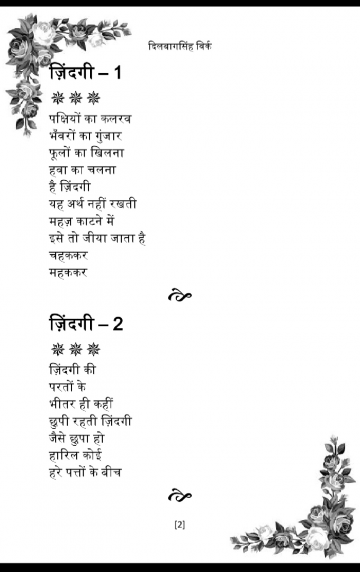 दिलबागसिंह विर्क
ज़िंदगी – 1
पक्षियों का कलरव
भँवरों का गुंजार
फूलों का खिलना
हवा का चलना
है ज़िंदगी
यह अर्थ नहीं रखती
महज़ काटने में
इसे तो जीया जाता है
चहककर
महककर
ज़िंदगी – 2
ज़िंदगी की
परतों के
भीतर ही कहीं
छुपी रहती ज़िंदगी
जैसे छुपा हो
हारिल कोई
हरे पत्तों के बीच
[2]